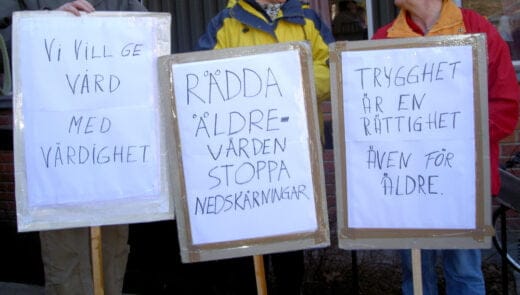 VI VILL GE
VÅRD
MED
VÄRDIGHET
RÄDDA
ÄLDRE-
VÅRDEN
STOPPA
NEDSKÄRNINGAR
TRYGGHET
ÄR EN
RÄTTIGHET
ÄVEN FÖR
ÄLDRE.